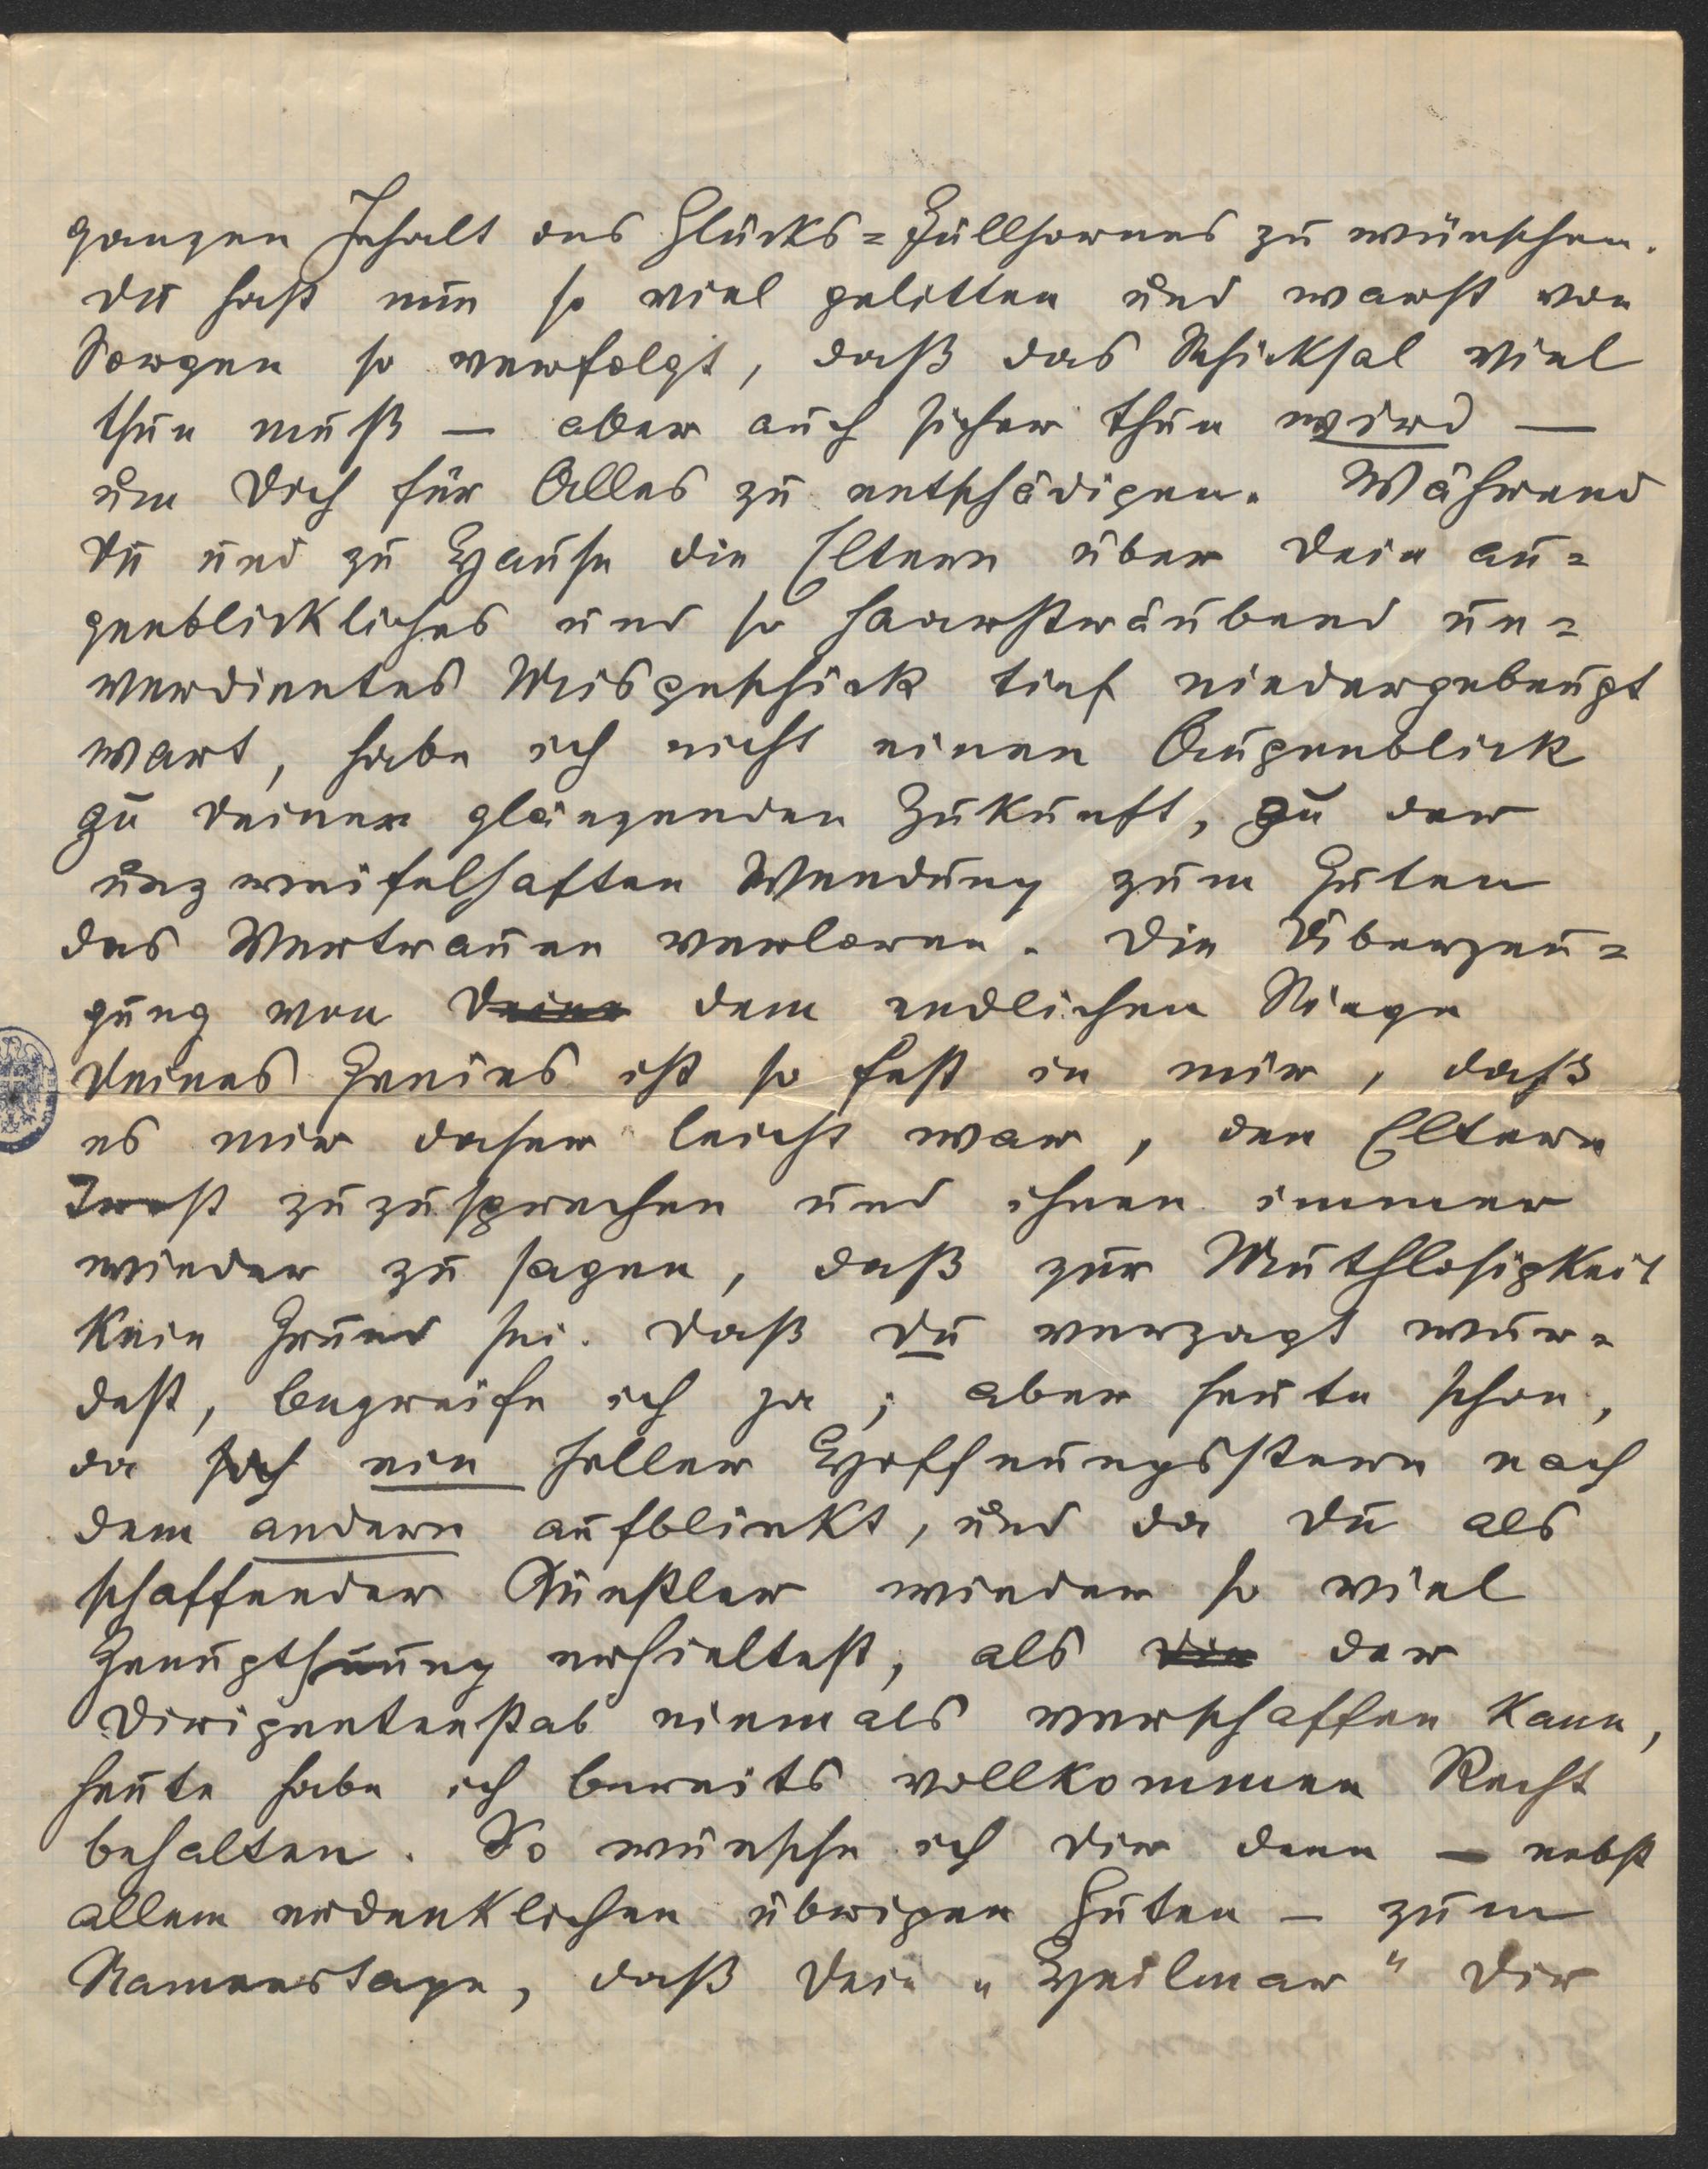 ganzen Inhalt des Glücks=Füllhornes zu wünschen.
Du hast nun so viel gelitten und warst von
Sorgen so verfolgt, daß das Schicksal viel
thun muß — aber auch sicher thun wird —
um Dich für Alles zu entschädigen. Während
Du und zu Hause die Eltern über Dein au=
genblickliches und so haarsträubend un=
verdientes Misgeschick tief niedergebeugt
wart, habe ich nicht einen Augenblick
zu Deiner glänzenden Zukunft, zu der
unzweifelhaften Wendung zum Guten
das Vertrauen verloren. Die Überzeu=
gung von Deine dem endlichen Siege
Deines Genies ist so fest in mir, daß
es mir daher leicht war, den Eltern
Trost zuzusprechen und ihnen immer
wieder zu sagen, daß zur Muthlosigkeit
kein Grund sei. Daß Du verzagt wur=
dest, begreife ich ja; aber heute schon,
da ein heller Hoffnungsstern nach
dem andern aufblinkt, und da Du als
schaffender Künstler wieder so viel
Genugthuung erhieltest, als die der
Dirigentenstab niemals verschaffen kann,
heute habe ich bereits vollkommen Recht
behalten. So wünsche ich Dir denn — nebst
allem erdenklichen übrigen Guten — zum
Namenstage, daß Dein „Heilmar" Dir